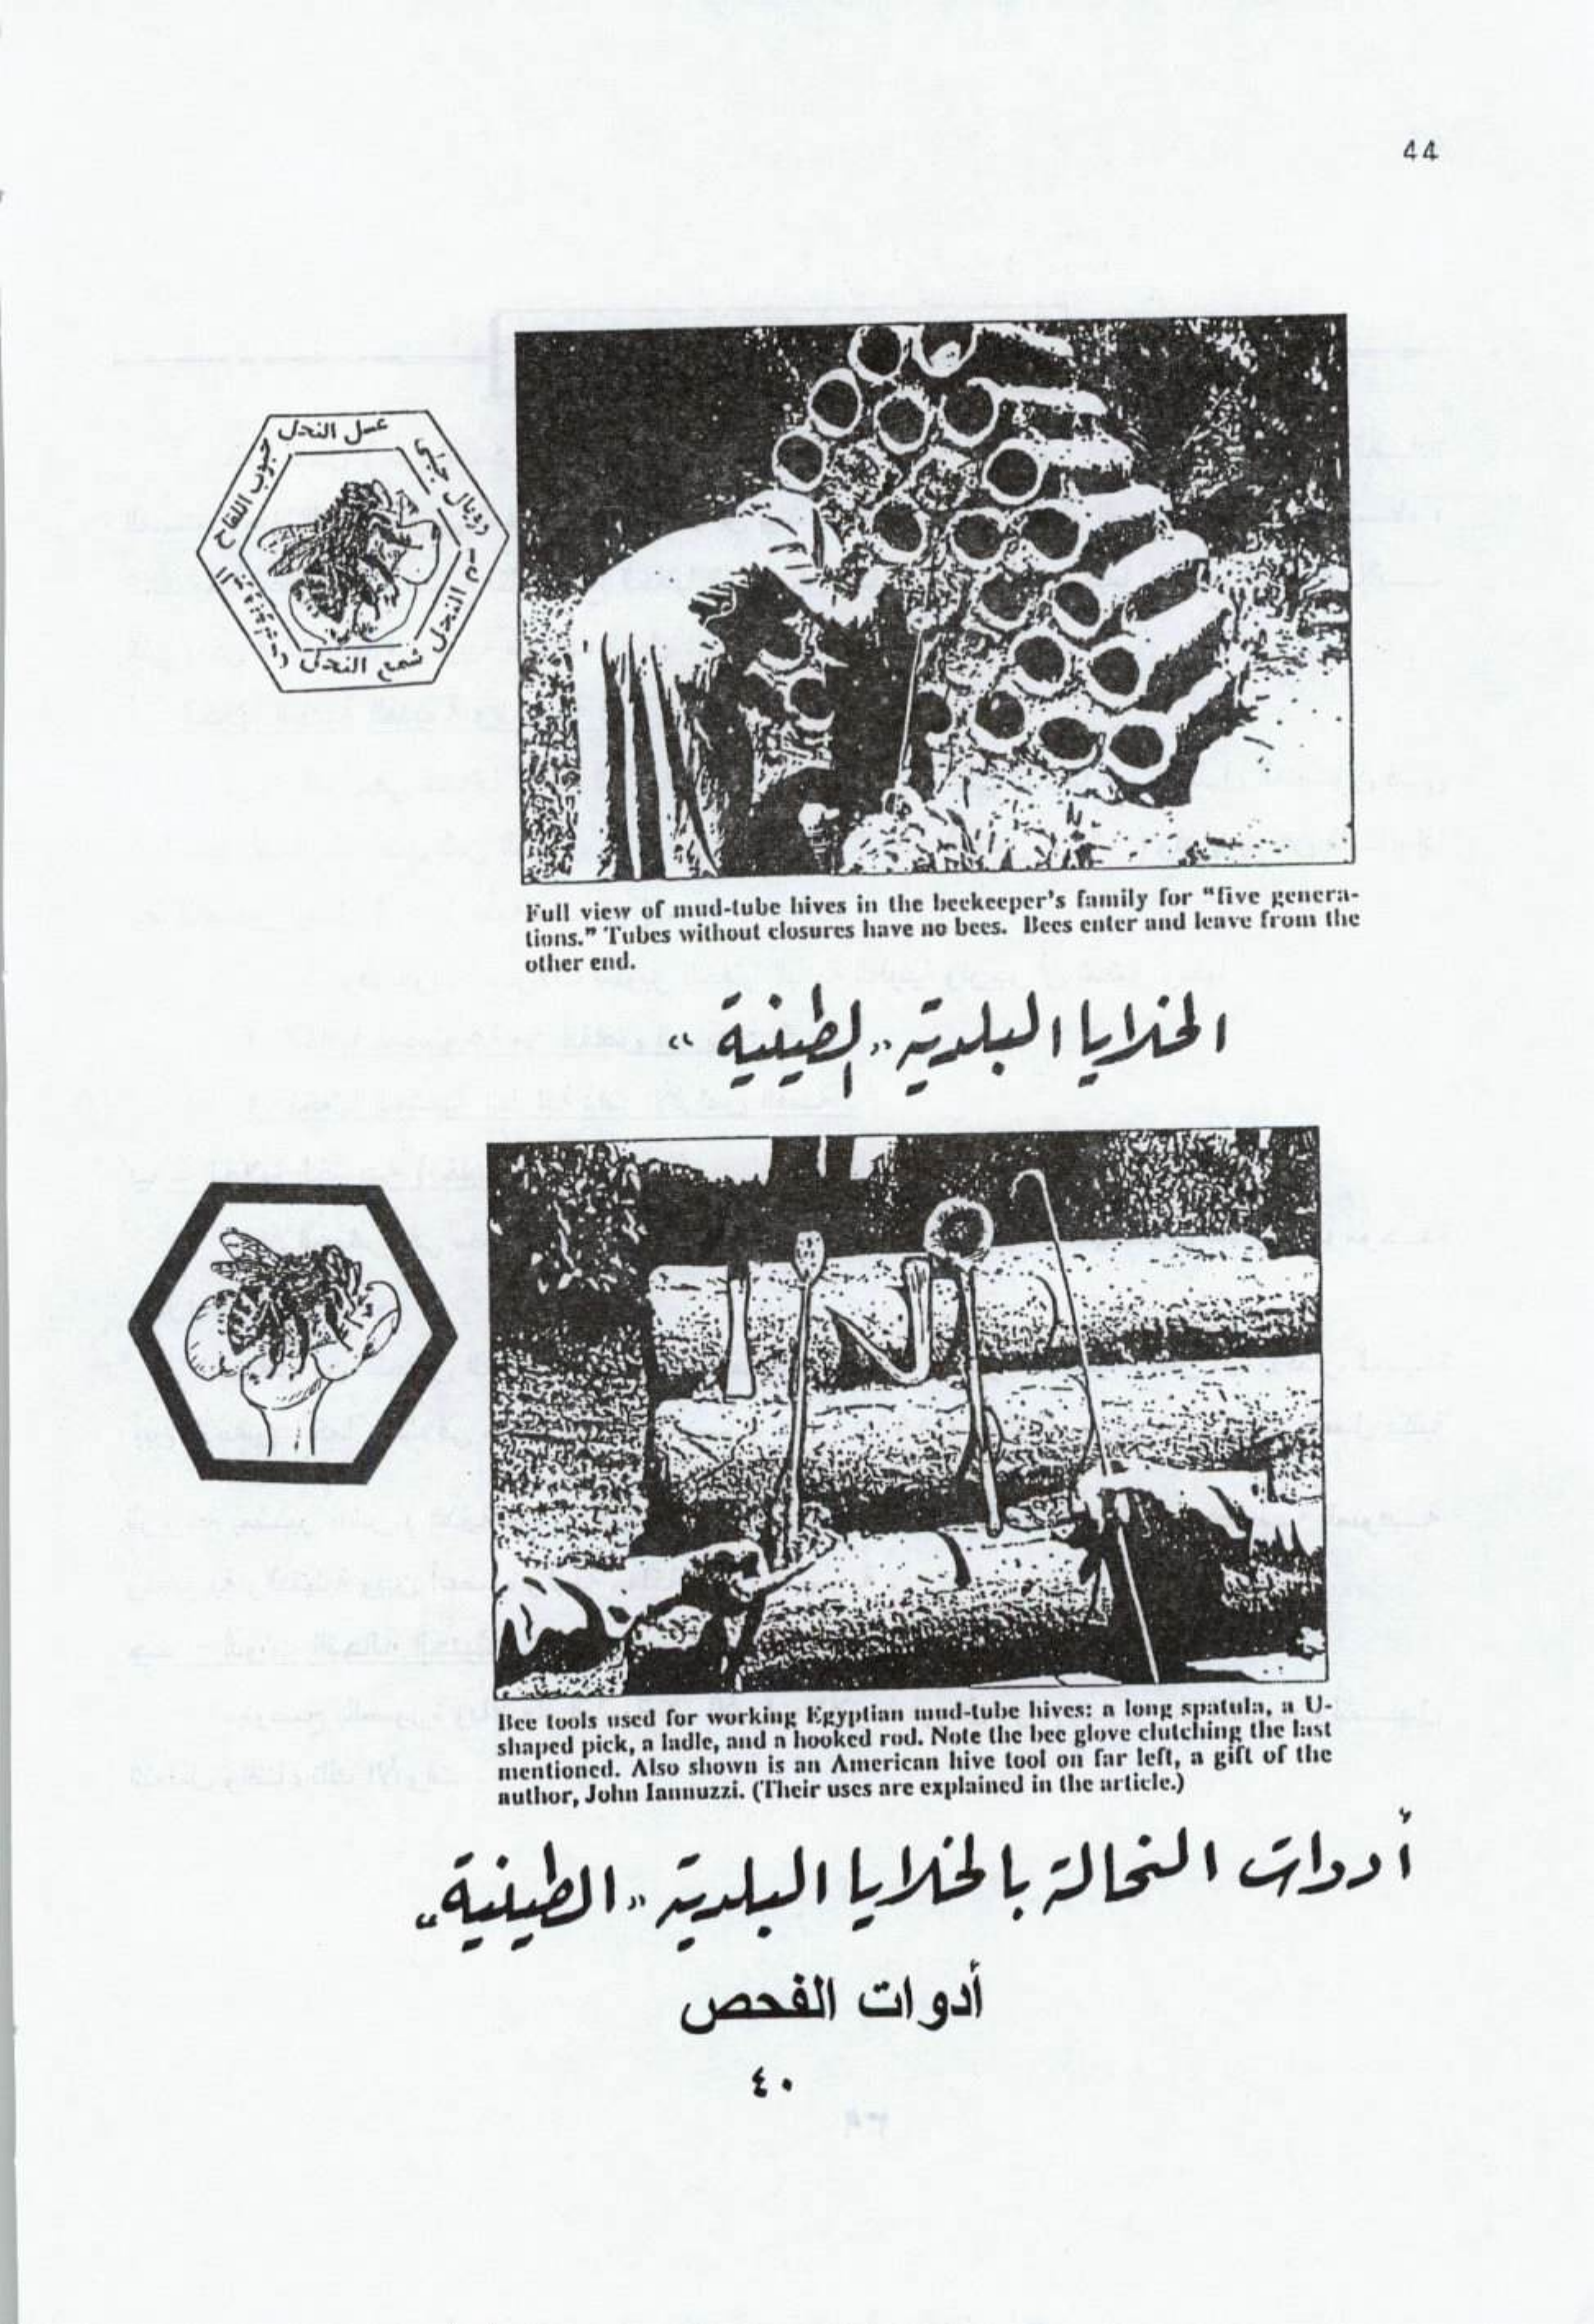 44
عسل النحل
رويال جيلي
سم النحل
شمع النحل
حبوب اللقاح
Full view of mud-tube hives in the beekeeper's family for "five genera-
tions." Tubes without closures have no bees. Bees enter and leave from the
other end.
الخلايا البلدية "الطينية"
Bee tools used for working Egyptian mud-tube hives: a long spatula, a U-
shaped pick, a ladle, and a hooked rod. Note the bee glove clutching the last
mentioned. Also shown is an American hive tool on far left, a gift of the
author, John Iannuzzi. (Their uses are explained in the article.)
أدوات النحالة بالخلايا البلدية "الطينية"
أدوات الفحص
٤٠